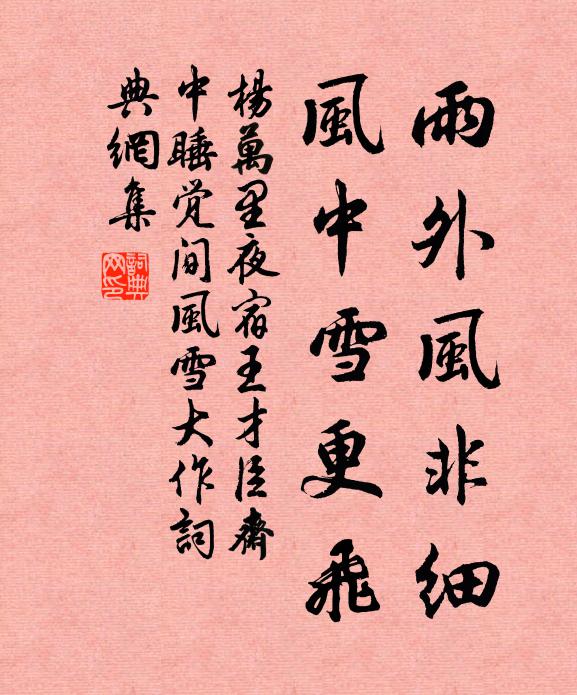 雨外風非細
風中雪更飛
楊萬里夜宿王才臣齋
中睡覺間風雪大作詞
典網集
詞典
网印